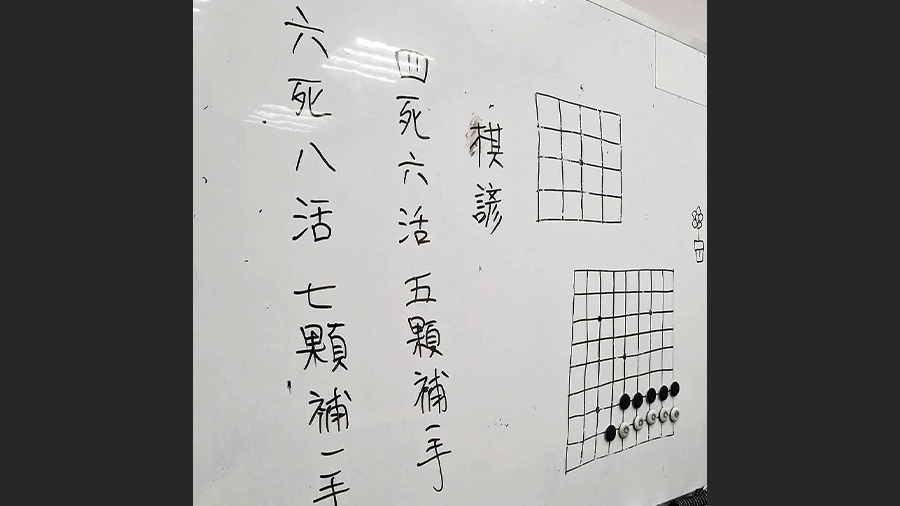 棋諺
四死六活 五顆補一手
六死八活 七顆補一手